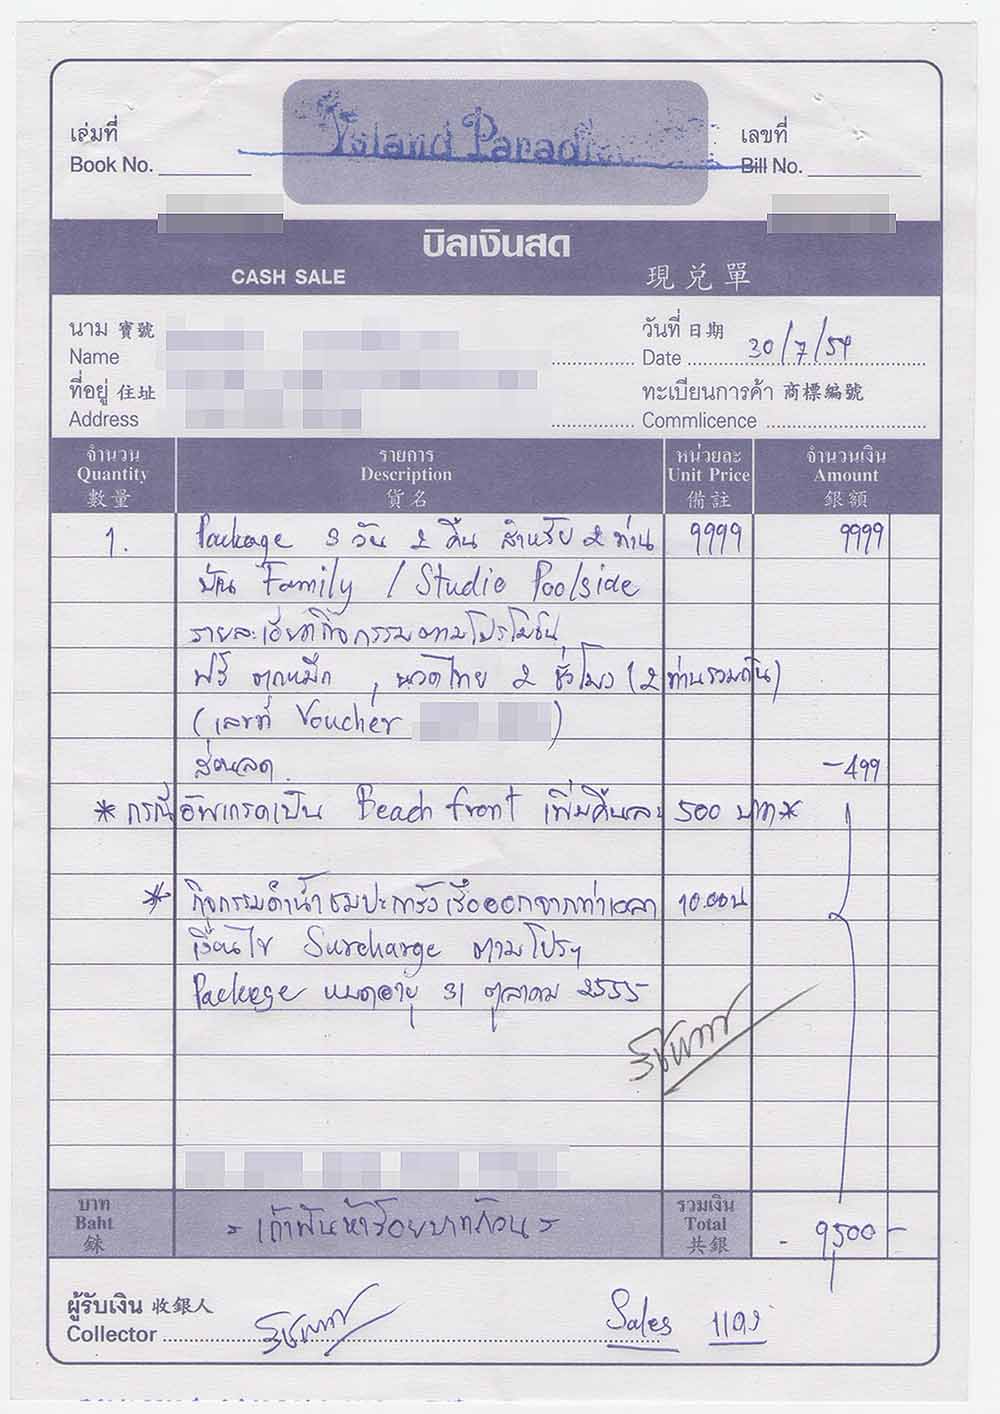 เล่มที่
Book No.
Island Paradi
เลขที่
Bill No.
บิลเงินสด
CASH SALE
現兌單
นาม 寶號
Name
วันที่ 日期
Date 30/7/54
ที่อยู่ 住址
Address
ทะเบียนการค้า 商標編號
Commlicence
จำนวน รายการ หน่วยละ จำนวนเงิน
Quantity Description Unit Price Amount
數量 貨名 備註 銀額
1. Package 3 วัน 2 คืน สำหรับ 2 ท่าน 9999 9999
บ้าน Family / Studio Poolside
รายละเอียดกิจกรรมตามโปรโมชั่น
ฟรี ตกหมึก , นวดไทย 2 ชั่วโมง (2 ท่านรวมกัน)
(เลขที่ Voucher )
ส่วนลด -499
* กรณีอัพเกรดเป็น Beach front เพิ่มคืนละ 500 บาท*
* กิจกรรมดำน้ำชมปะการังเรือออกจากท่าเวลา 10.00น
เงื่อนไข Surcharge ตามโปรฯ
Package หมดอายุ 31 ตุลาคม 2555
บาท
Baht
銖
= เก้าพันห้าร้อยบาทถ้วน =
รวมเงิน
Total
共銀
- 9,500 -
ผู้รับเงิน 收銀人
Collector
Sales